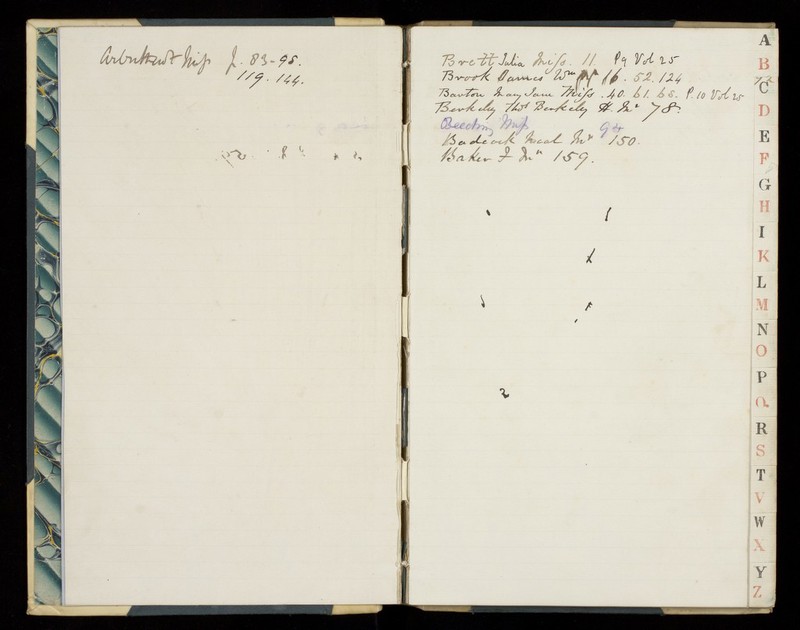 Arbuthnot Miss p. 83-95.
119. 144.
Brett Julia Miss. 11. P9 Vol 25
Brook James Wm 16. 52. 124
Barton Mary Jane Miss. 40. 61. 68. P. 10 Vol 25
Berkeley Thos Berkeley H. Mr 78.
Miss 94
Badcock Mr 150.
Baker F Mr 159.
A
B
C
D
E
F
G
H
I
K
L
M
N
O
P
Q
R
S
T
V
W
X
Y
Z